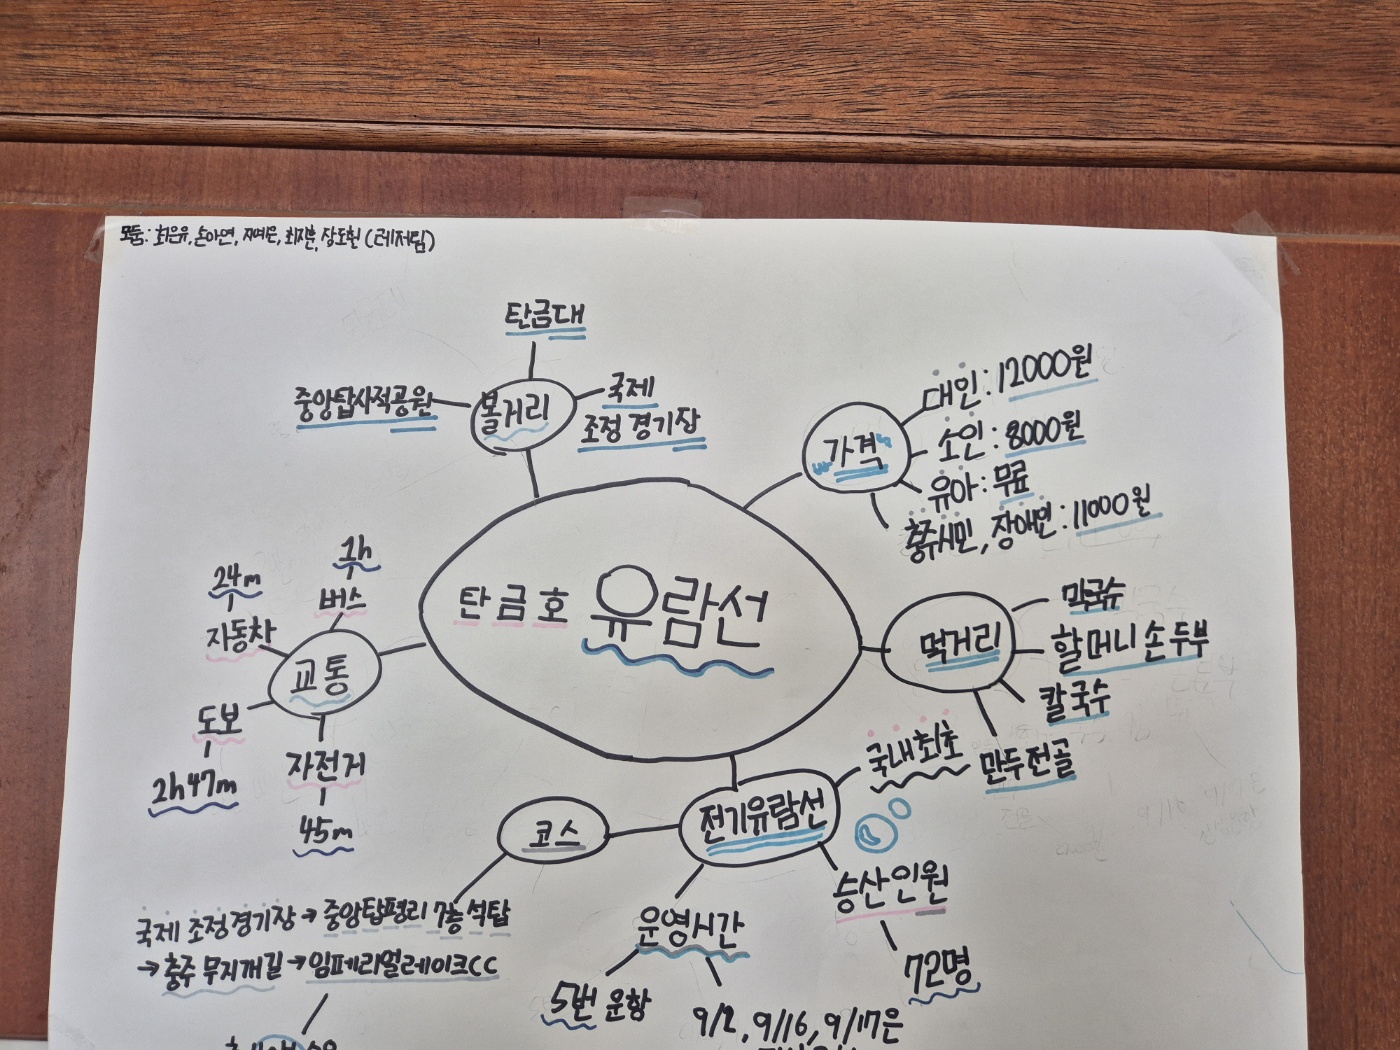 모둠: 최은유, 손아연, 지예은, 최지분, 장도훤 (레저팀)
탄금대
중앙탑사적공원
볼거리
국제
조정 경기장
가격
대인 : 12000원
소인 : 8000원
유아 : 무료
충주시민, 장애인 : 11000원
탄금호 유람선
1h
버스
24m
자동차
교통
도보
2h47m
자전거
45m
먹거리
막국수
할머니 손두부
칼국수
만두전골
전기유람선
국내최초
승산인원
72명
운영시간
5번 운항
9/2, 9/16, 9/17은
코스
국제 조정경기장 → 중앙탑평리 7층 석탑
→ 충주 무지개길 → 임페리얼레이크CC